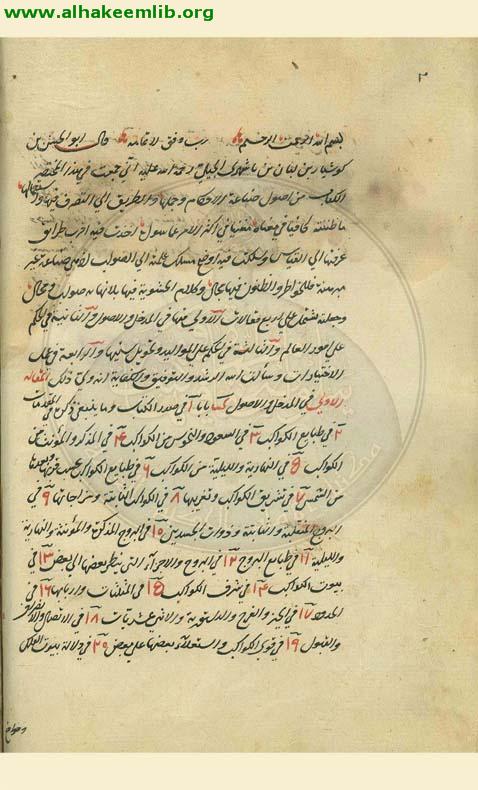 www.alhakeemlib.org
٢
بسم الله الرحمن الرحيم رب وفق لاتمامه قال ابو الحسن بن
كوشيار بن لبان بن باشهري الجيلي رحمة الله عليه اني جمعت في هذا المختصر
الكتاب من اصول صناعة الاحكام وجملها والطريق الى التصرف فيها واستعمالها
ما ظننته كافيا في معناه مغنيا في اكثر الامر عما سواه اخذت فيه اقرب طرائق
غرضها الى القياس وسلكت فيه اوضح مسلك الى الصواب صناعة غير
مبرهنة وللخواطر والظنون فيها مجال وكلام الحشوية فيها بلا نهاية صواب ومحال
وجعلته يشتمل على اربع مقالات الاولى منها في المدخل والاصول والثانية في الحكم
على امور العالم والثالثة في الحكم على المواليد وتحويل سنيها والرابعة في جمل
الاختيارات وسألت الله الرشد والتوفيق والكفاية انه ولي ذلك المقالة
الاولى في المدخل والاصول بابا ١ في صدر الكتاب وما ينبغي ذكره في المقدمات
٢ في طبايع الكواكب ٣ في السعود والنحوس من الكواكب ٤ في المذكر والمؤنث من
الكواكب ٥ في النهارية والليلية من الكواكب ٦ في طبايع الكواكب بحسب قربها وبعدها
من الشمس ٧ في تشريق الكواكب وتغريبها ٨ في الكواكب الثابتة ومزاجاتها ٩ في
البروج المنقلبة والثابتة وذوات الجسدين ١٠ في البروج المذكرة والمؤنثة والنهارية
والليلية ١١ في طبايع البروج ١٢ في البروج والاجزاء التي ينظر بعضها الى بعض ١٣ في
بيوت الكواكب ١٤ في شرف الكواكب ١٥ في المثلثات واربابها ١٦ في
الحدود ١٧ في الحيز والفرح والدستورية والاثني عشريات ١٨ في الاتصال والانصراف
والقبول ١٩ في قوى الكواكب واستعلاء بعضها على بعض ٢٠ في دلالة بيوت الفلك